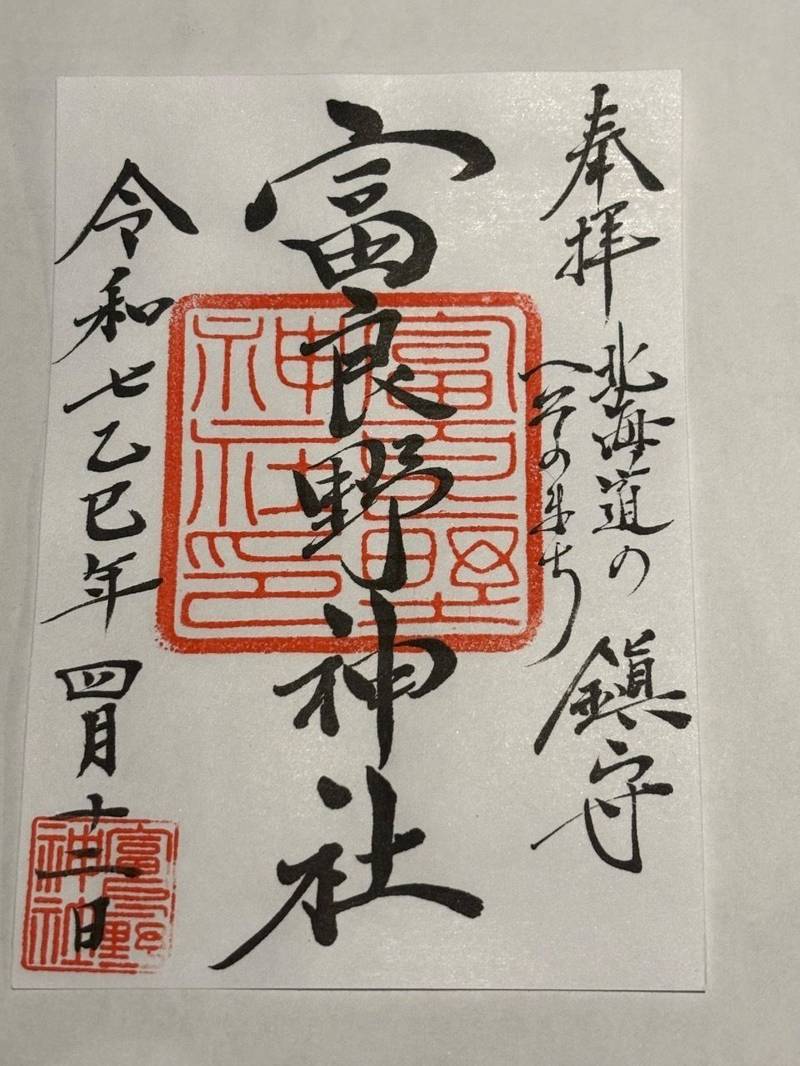 奉拝
北海道の
へそのまち
鎮守
富良野神社
令和七乙巳年四月十三日
富良野神社印
富良野神社